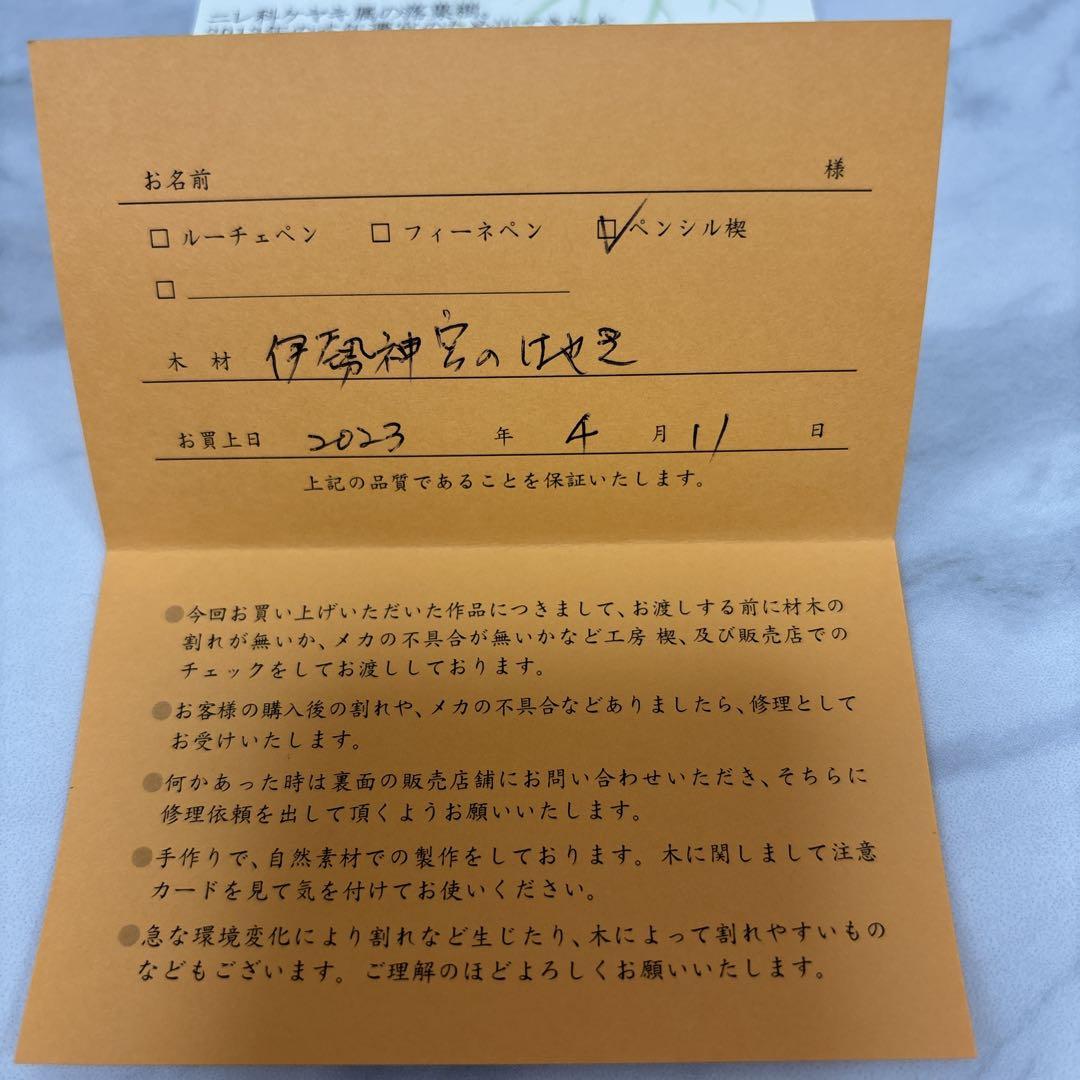 ニレ科ケヤキ属の落葉樹
お名前 様
□ ルーチェペン □ フィーネペン ☑ ペンシル楔
□
木 材 伊勢神宮のけやき
お買上日 2023 年 4 月 11 日
上記の品質であることを保証いたします。
●今回お買い上げいただいた作品につきまして、お渡しする前に材木の
割れが無いか、メカの不具合が無いかなど工房 楔、及び販売店での
チェックをしてお渡ししております。
●お客様の購入後の割れや、メカの不具合などありましたら、修理として
お受けいたします。
●何かあった時は裏面の販売店舗にお問い合わせいただき、そちらに
修理依頼を出して頂くようお願いいたします。
●手作りで、自然素材での製作をしております。木に関しまして注意
カードを見て気を付けてお使いください。
●急な環境変化により割れなど生じたり、木によって割れやすいもの
などもございます。ご理解のほどよろしくお願いいたします。